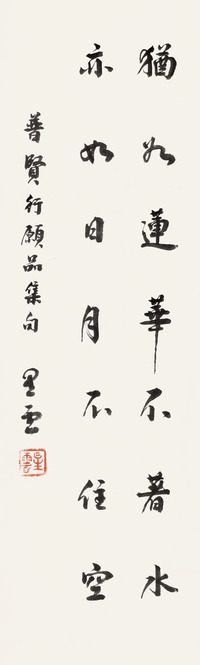 猶如蓮華不著水
亦如日月不住空
普賢行願品集句 星雲
星雲